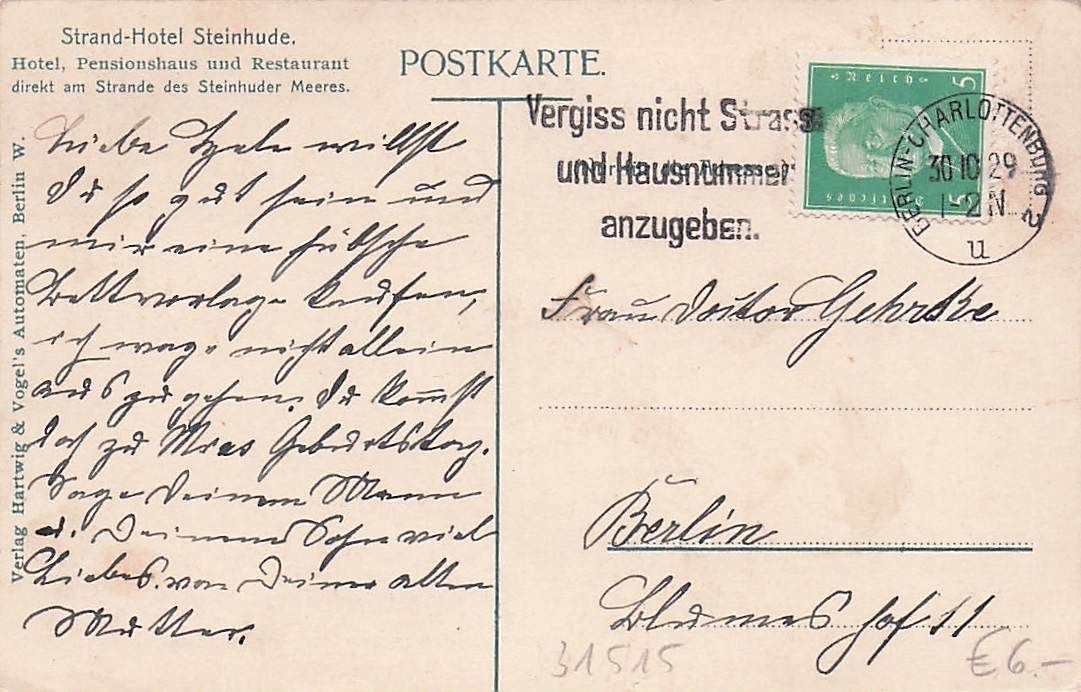 Strand-Hotel Steinhude.
Hotel, Pensionshaus und Restaurant
direkt am Strande des Steinhuder Meeres.
POSTKARTE.
Verlag Hartwig & Vogel's Automaten, Berlin W.
Vergiss nicht Strasse
und Hausnummer
anzugeben.
Reich 5
5
BERLIN-CHARLOTTENBURG 2
30.10.29
1-2 N.
u
Liebe willst
Du so gut sein und
mir eine hübsche
Bettvorlage kaufen,
ich wage nicht allein
aus zu gehen. Du kommst
doch zu Geburtstag.
Sage Deinem Mann
u. Deinem Sohn viel
Liebes von Deiner alten
Mutter.
Frau Doktor Gehrcke
Berlin
Blumeshof 11
31515
€ 6.-